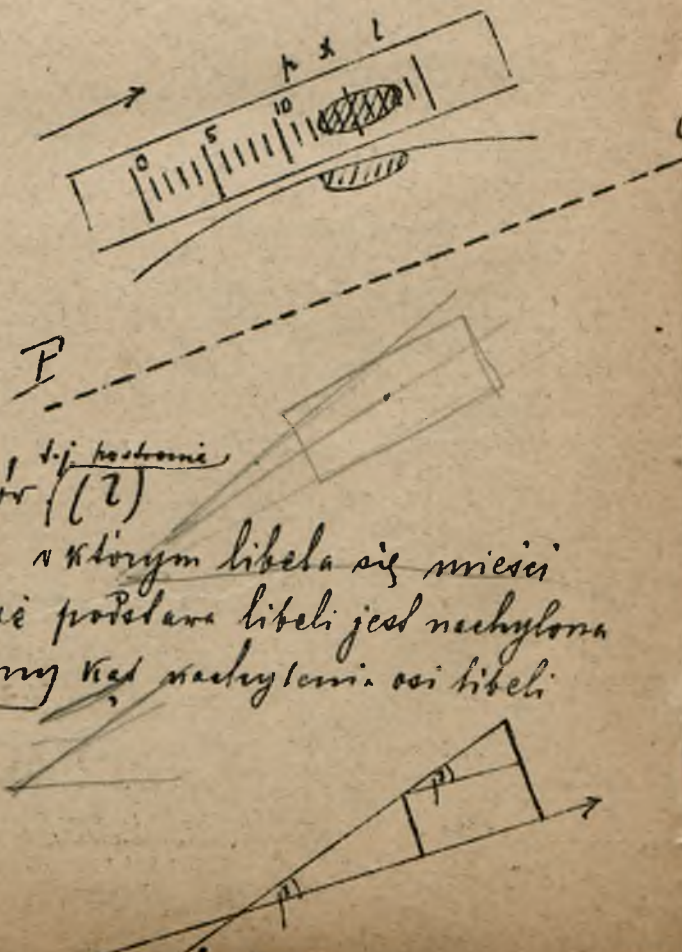 p x l
0 5 10
P
t.j. postronie
(l)
którym libela się mieści
podstawa libeli jest nachylona
kąt nachylenia osi libeli